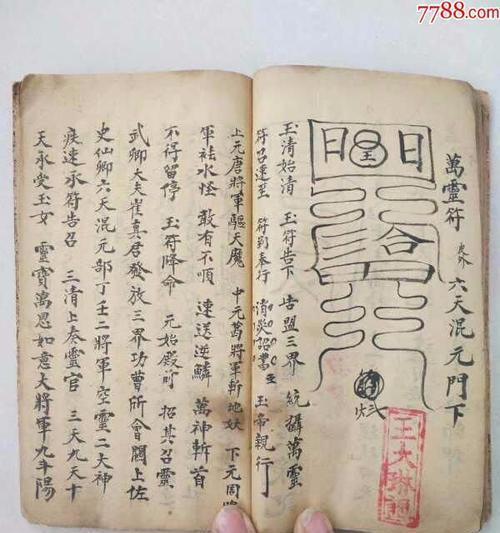 7788.com
萬靈符
六天混元門下
日 日
玉清始清 玉符告下 告盟三界 統攝萬靈
符召速至 符到奉行 消災 至 玉帝親行
上元唐將軍驅天魔 中元葛將軍斬地妖 下元周將
軍祛水怪 敢有不順 速送逆鱗 萬神斬首
不得留停 玉符降命 元始殿前 招其召靈
武卿大夫崔真君發放三界功曹所會闕上佐
史仙卿六天混元部丁壬二將軍空靈二大神
疾速承符告召 三清上奏靈官 三天九天十
天承受玉女 靈寶萬恩如意大將軍九斗陽
王大琳